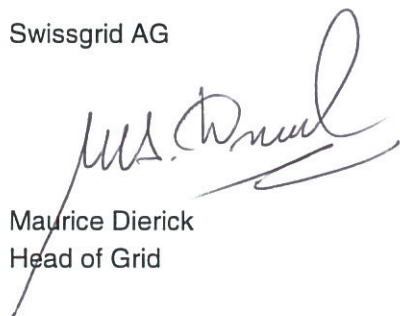 Swissgrid AG
Maurice Dierick
Head of Grid